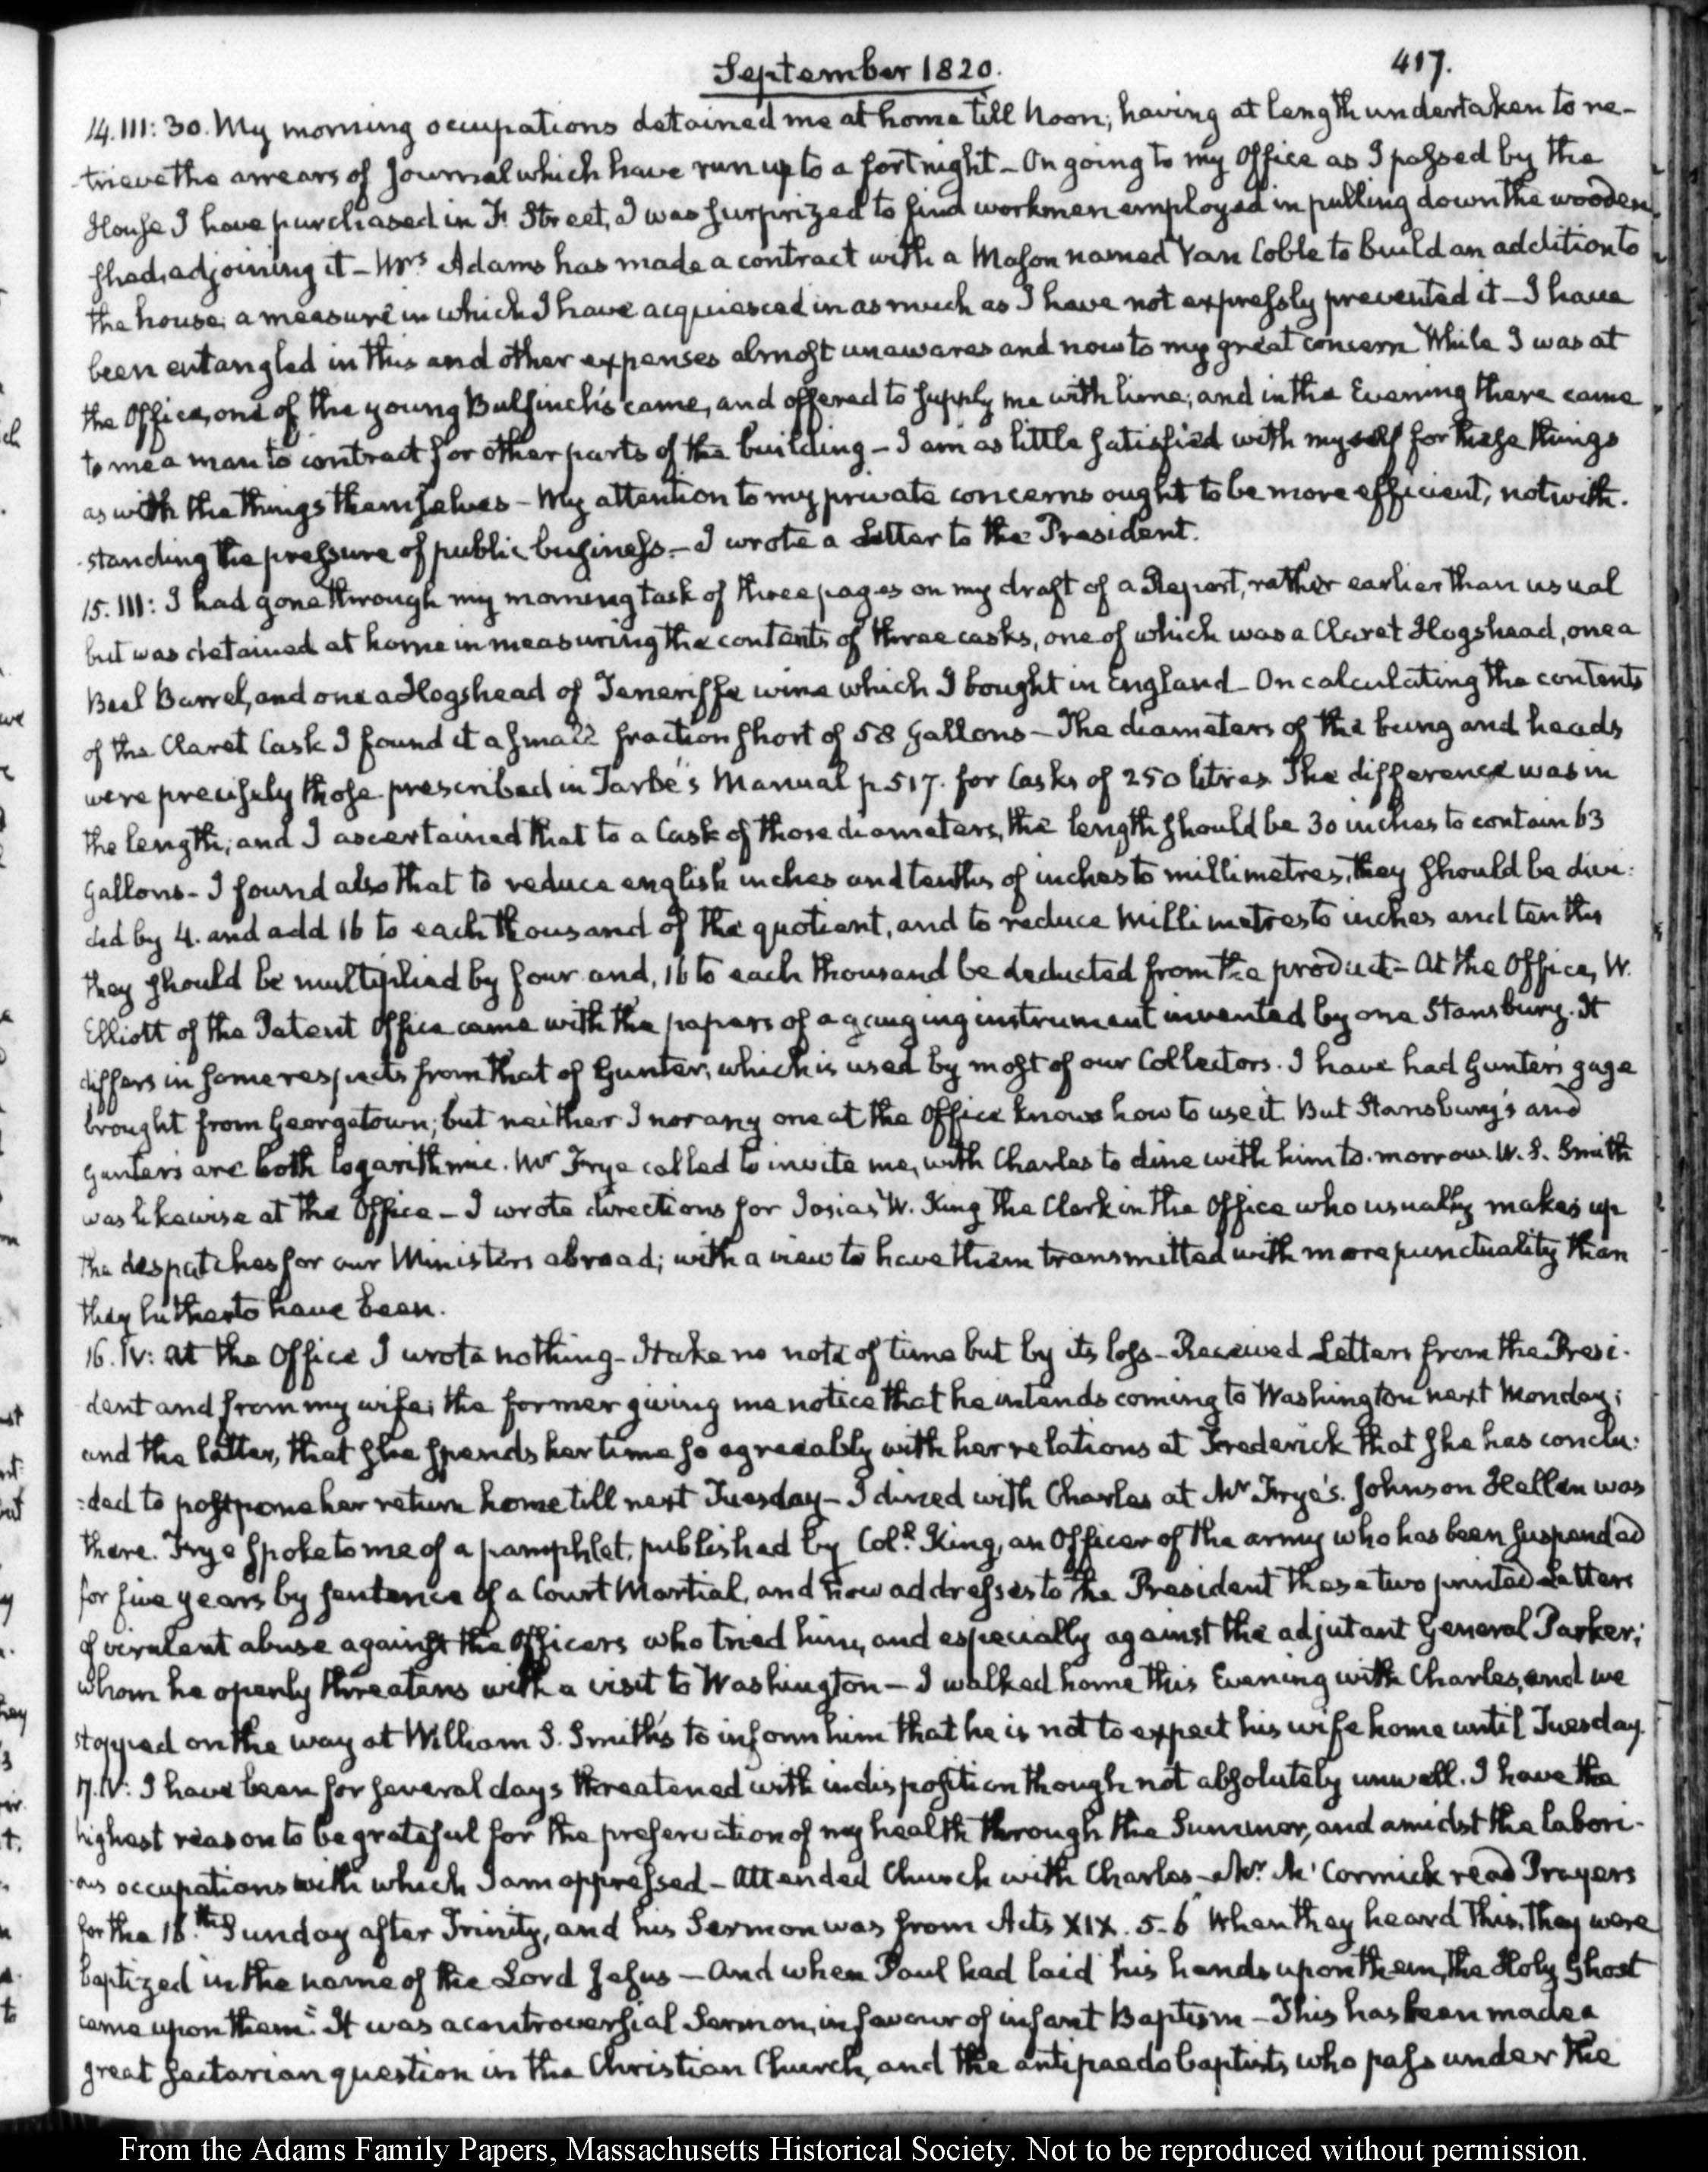 September 1820.
417.
14. III: 30. My morning occupations detained me at home till Noon; having at length undertaken to re-
-trieve the arrears of Journal which have run up to a fortnight – On going to my Office as I passed by the
House I have purchased in F. Street, I was surprized to find workmen employed in pulling down the wooden
shed, adjoining it – Mrs Adams has made a contract with a Mason named Van Coble to build an addition to
the house; a measure in which I have acquiesced in as much as I have not expressly prevented it – I have
been entangled in this and other expenses almost unawares and now to my great concern While I was at
the Office, one of the young Bulfinch's came, and offered to supply me with lime; and in the Evening there came
to me a man to contract for other parts of the building – I am as little satisfied with myself for these things
as with the things themselves – My attention to my private concerns ought to be more efficient, notwith.
-standing the pressure of public business. – I wrote a Letter to the President.
15. III: I had gone through my morning task of three pages on my draft of a Report, rather earlier than usual
but was detained at home in measuring the contents of three casks, one of which was a Claret Hogshead, one a
Barrel, and one a Hogshead of Teneriffe wine which I bought in England – On calculating the contents
of the Claret Cask I found it a small fraction short of 58 Gallons – The diameters of the bung and heads
were precisely those prescribed in Tarbé's Manual p. 517. for Casks of 250 litres. The difference was in
the length; and I ascertained that to a Cask of those diameters, the length should be 30 inches to contain 63
Gallons – I found also that to reduce english inches and tenths of inches to millimetres, they should be divi:
ded by 4. and add 16 to each thousand of the quotient, and to reduce Millimetres to inches and tenths
they should be multiplied by four and, 16 to each thousand be deducted from the product – At the Office, W.
Elliott of the Patent Office came with the papers of a gauging instrument invented by one Stansbury. It
differs in some respects from that of Gunter, which is used by most of our Collectors. I have had Gunter's gage
brought from Georgetown; but neither I nor any one at the Office knows how to use it. But Stansbury's and
Gunter's are both logarithmic. Mr Frye called to invite me, with Charles to dine with him to-morrow. W. S. Smith
was likewise at the Office – I wrote directions for Josias W. King the Clerk in the Office who usually makes up
the despatches for our Ministers abroad; with a view to have them transmitted with more punctuality than
they hitherto have been.
16. IV: At the Office I wrote nothing – I take no note of time but by its loss – Received Letters from the Presi-
dent and from my wife; the former giving me notice that he intends coming to Washington next Monday;
and the latter, that she spends her time so agreeably with her relations at Frederick that she has conclu:
:ded to postpone her return home till next Tuesday – I dined with Charles at Mr Frye's. Johnson Hellen was
there. Frye spoke to me of a pamphlet, published by Col.l King, an Officer of the army who has been suspended
for five years by sentence of a Court Martial, and now addresses to the President these two printed Letters
of virulent abuse against the Officers who tried him, and especially against the adjutant General Parker;
whom he openly threatens with a visit to Washington – I walked home this Evening with Charles, and we
stopped on the way at William S. Smith's to inform him that he is not to expect his wife home until Tuesday.
17. IV: I have been for several days threatened with indisposition though not absolutely unwell. I have the
highest reason to be grateful for the preservation of my health through the Summer, and amidst the labori-
-ous occupations with which I am oppressed – Attended Church with Charles – Mr. Mc Cormick read Prayers
for the 16.th Sunday after Trinity, and his Sermon was from Acts XIX. 5-6 "When they heard this, they were
baptized in the name of the Lord Jesus – And when Paul had laid his hands upon them, the Holy Ghost
came upon them." It was a controversial Sermon, in favour of infant Baptism – This has been made a
great sectarian question in the Christian Church, and the antipaedobaptists who pass under the
From the Adams Family Papers, Massachusetts Historical Society. Not to be reproduced without permission.